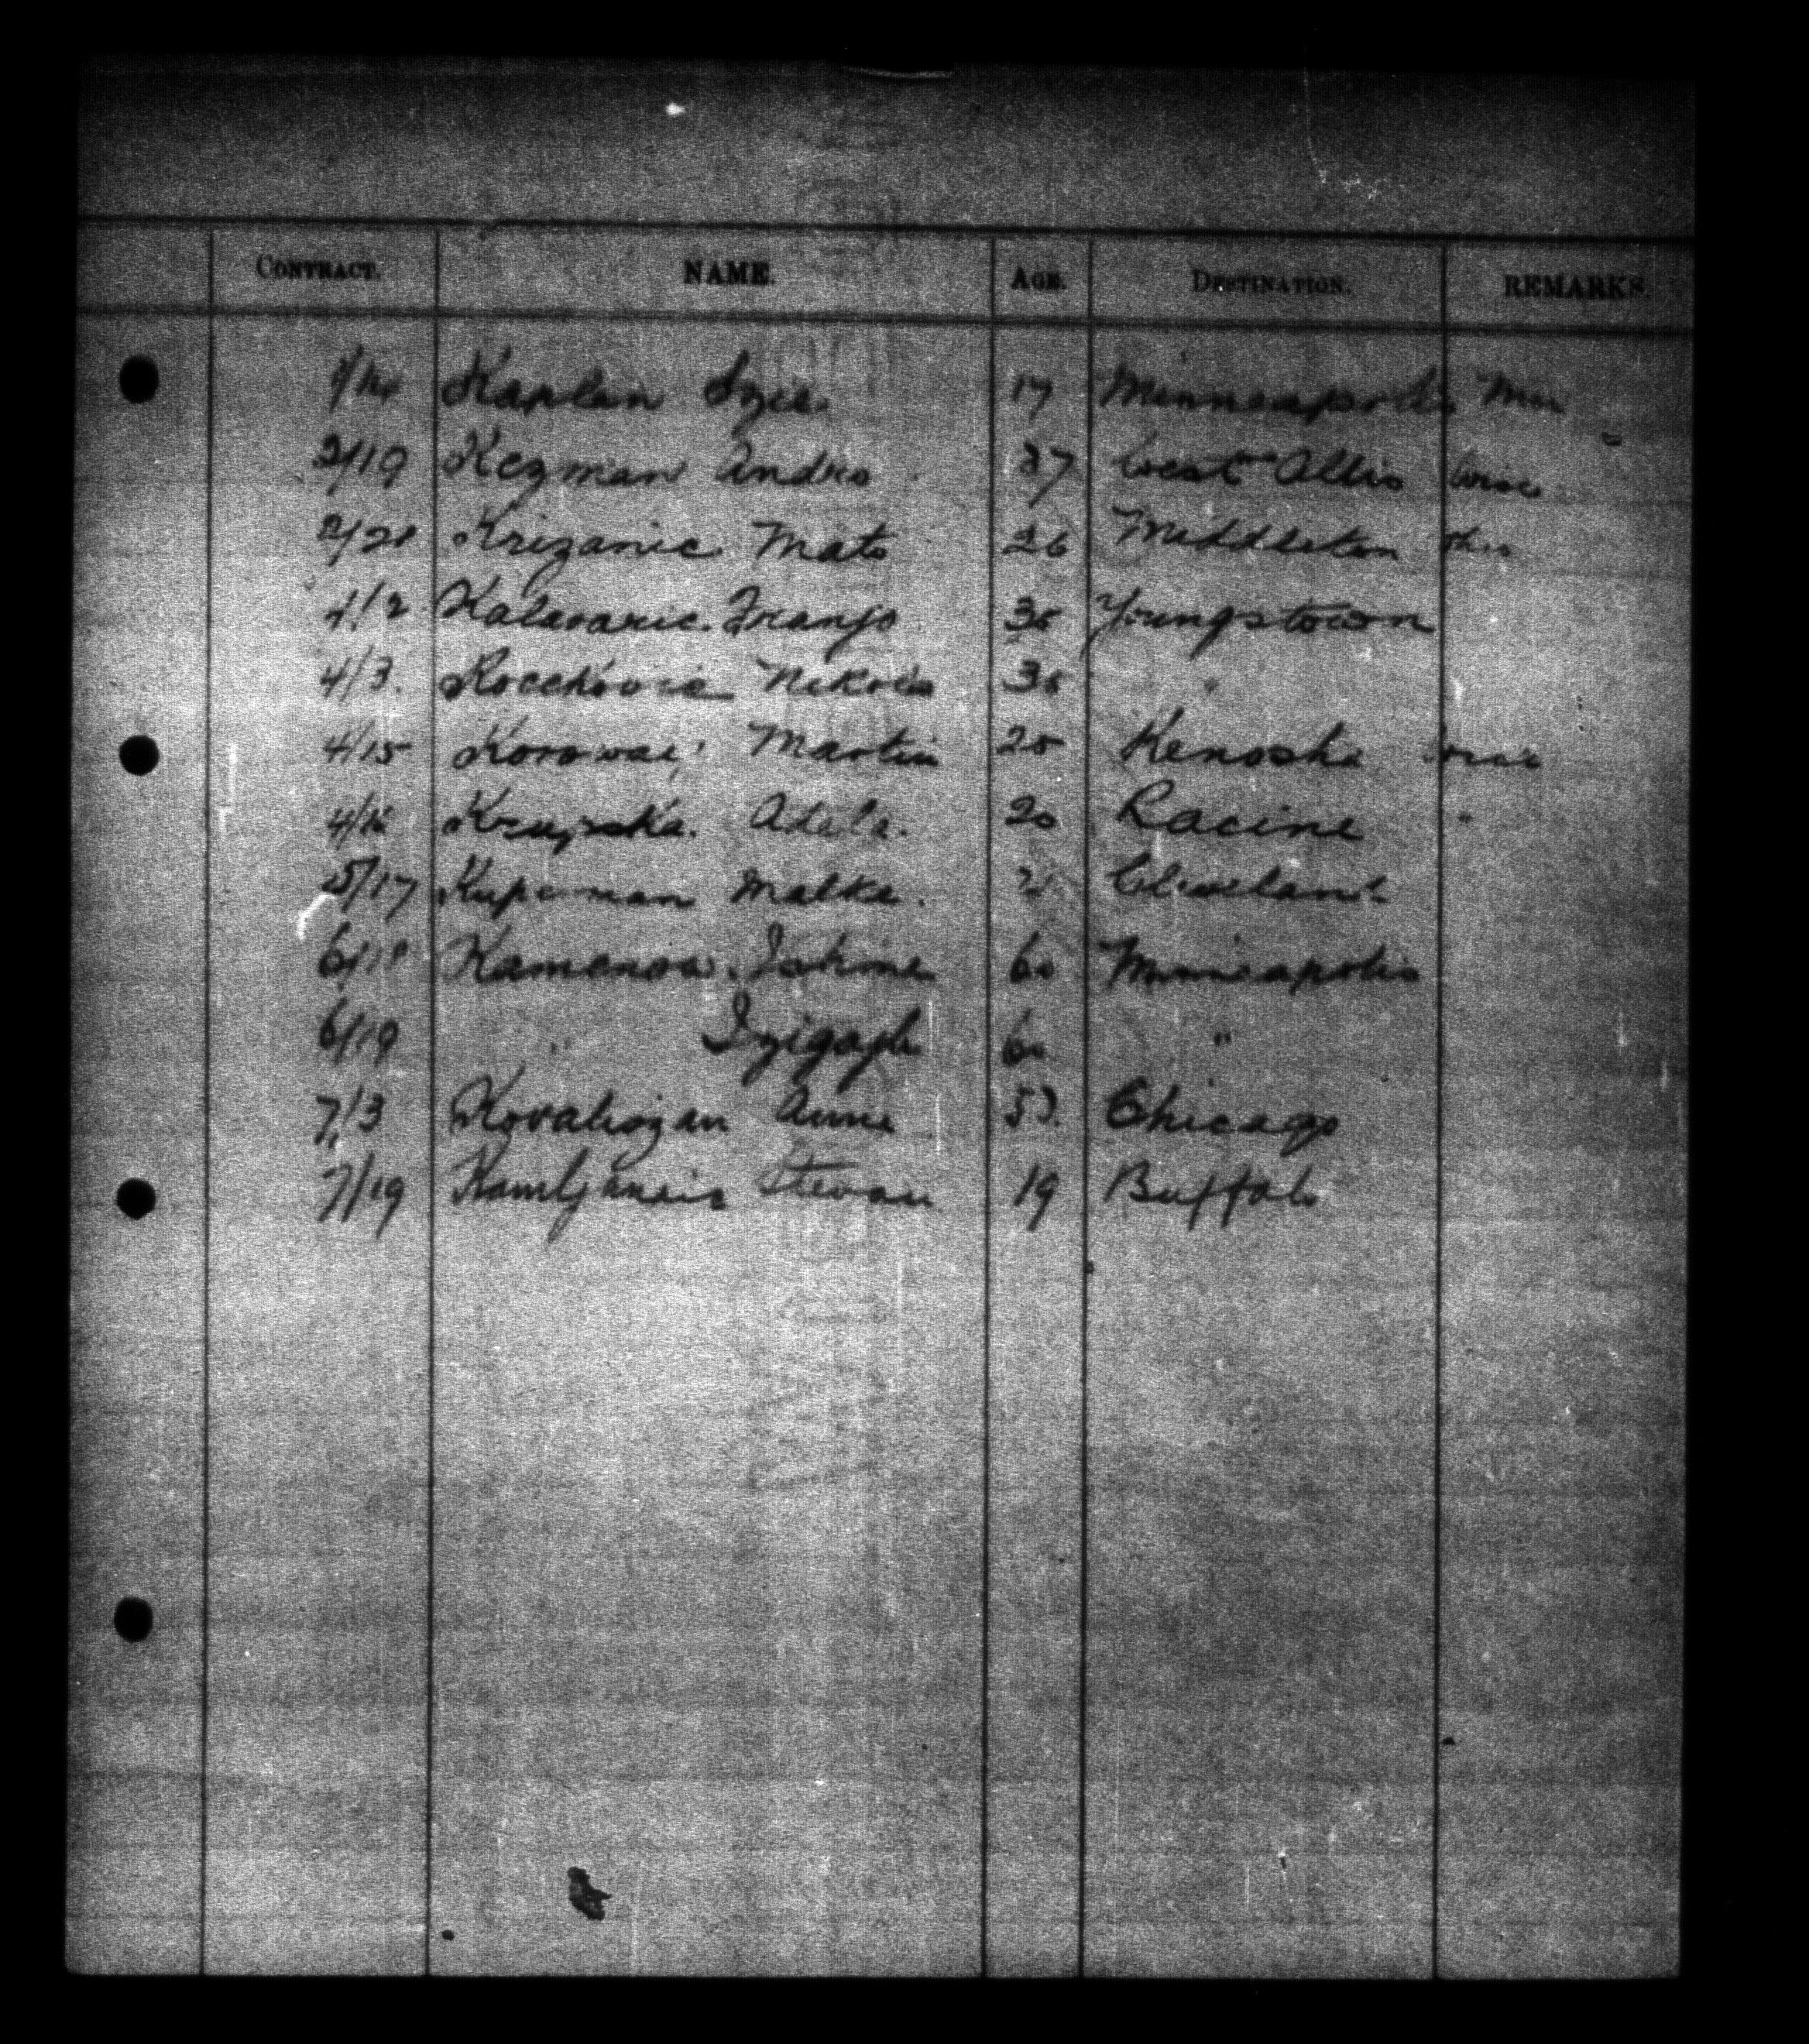 CONTRACT. NAME. AGE. DESTINATION. REMARKS.
1/14 Kaplan Izie 17 Minneapolis Min
2/19 Kezman Andro 37 West Allis Wisc
2/21 Krizanic Mato 26 Middleton Ohio
4/2 Kalavaric Franjo 35 Youngstown
4/3. Kocekovic Nikola 35 "
4/15 Martin 25 Kenosha Wisc
4/16 Krupska. Adela. 20 Racine "
5/17 Kuperman Malka. Cleveland
6/18 Kamenow 60 Minneapolis
6/19 " 60 "
7/3 Anna 53. Chicago
7/19 Stevan 19 Buffalo